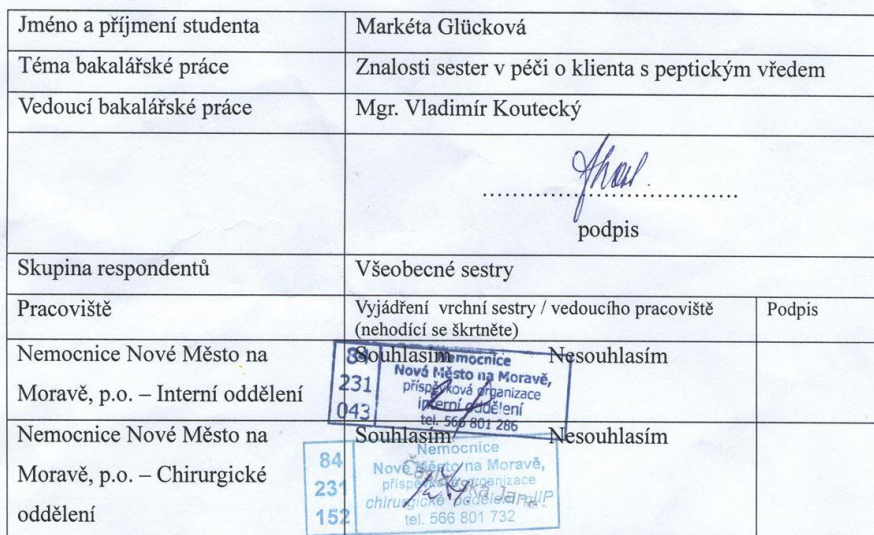 Jméno a příjmení studenta
Markéta Glücková
Téma bakalářské práce
Znalosti sester v péči o klienta s peptickým vředem
Vedoucí bakalářské práce
Mgr. Vladimír Koutecký
podpis
Skupina respondentů
Všeobecné sestry
Pracoviště
Vyjádření vrchní sestry / vedoucího pracoviště
(nehodící se škrtněte)
Podpis
Nemocnice Nové Město na
Moravě, p.o. – Interní oddělení
Souhlasím Nesouhlasím
84
231
043
Nemocnice
Nové Město na Moravě,
příspěvková organizace
interní oddělení
tel. 566 801 286
Nemocnice Nové Město na
Moravě, p.o. – Chirurgické
oddělení
Souhlasím Nesouhlasím
84
231
152
Nemocnice
Nové Město na Moravě,
příspěvková organizace
chirurgické oddělení
tel. 566 801 732